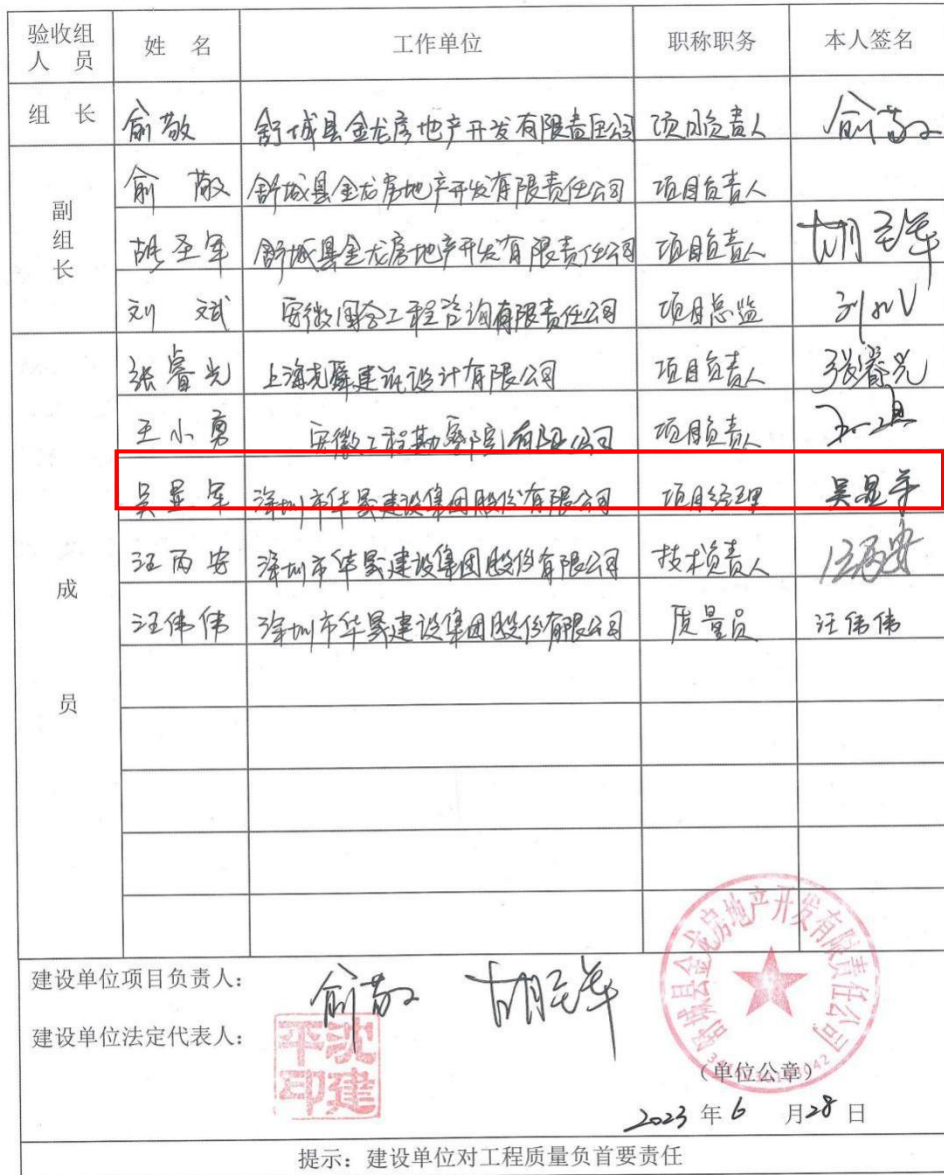 验收组人员 姓名 工作单位 职称职务 本人签名
组长 俞敬 舒城县金龙房地产开发有限责任公司 项目负责人 俞敬
副组长 俞敬 舒城县金龙房地产开发有限责任公司 项目负责人
胡圣军 舒城县金龙房地产开发有限责任公司 项目负责人 胡圣军
刘斌 安徽国合工程咨询有限责任公司 项目总监 刘斌
成员 张睿光 上海尧舜建筑设计有限公司 项目负责人 张睿光
王小勇 安徽工程勘察院有限公司 项目负责人
吴显军 深圳市华晟建设集团股份有限公司 项目经理 吴显军
汪丙安 深圳市华晟建设集团股份有限公司 技术负责人 汪丙安
汪伟伟 深圳市华晟建设集团股份有限公司 质量员 汪伟伟
建设单位项目负责人: 俞敬 胡圣军
建设单位法定代表人: 沈建平印
舒城县金龙房地产开发有限责任公司
(单位公章)
2023年6月28日
提示:建设单位对工程质量负首要责任